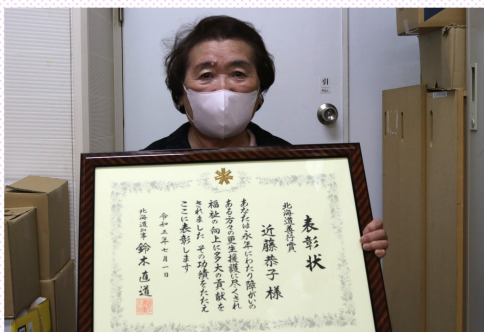 表彰状
北海道善行賞
近藤恭子様
あなたは永年にわたり障がいの
ある方々の更生援護に尽くされ
福祉の向上に多大の貢献を
されました その功績をたたえ
ここに表彰します
令和三年七月一日
北海道知事 鈴木直道
引